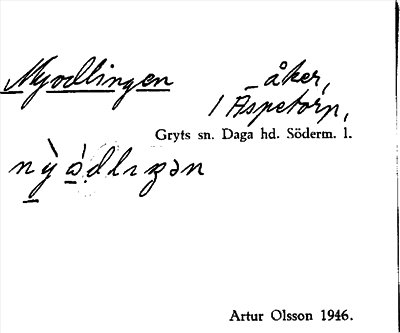 Nyodlingen åker,
1 Äspetorp,
Gryts sn. Daga hd. Söderm. l.
nỳòdlıŋən
Artur Olsson 1946.